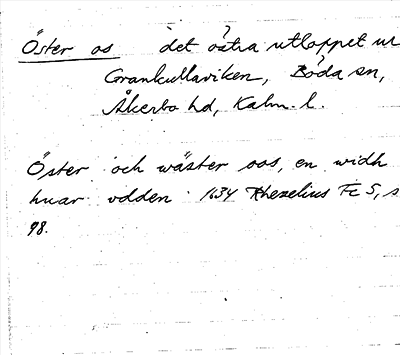 Öster os det östra utloppet ur
Grankullaviken, Böda sn,
Åkerbo hd, Kalm. l.
Öster och wäster oos, en widh
huar vdden 1634 Rhezelius Fc 5, s
98.